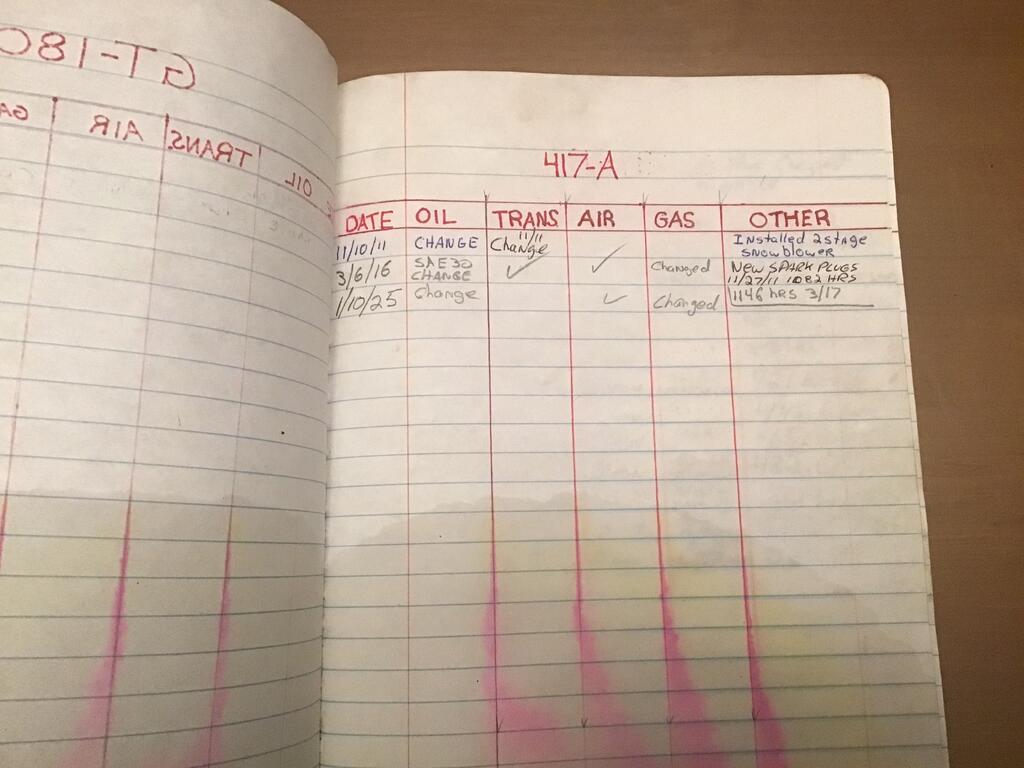 GT-18
GA AIR TRANS OIL
417-A
DATE OIL TRANS AIR GAS OTHER
11/10/11 CHANGE Change 11/11 Installed 2 stage
snowblower
3/6/16 SAE30 ✓ ✓ Changed New SPARK PLUGS
CHANGE 11/27/11 1082 HRS
1/10/25 Change ✓ Changed 1146 hrs 3/17